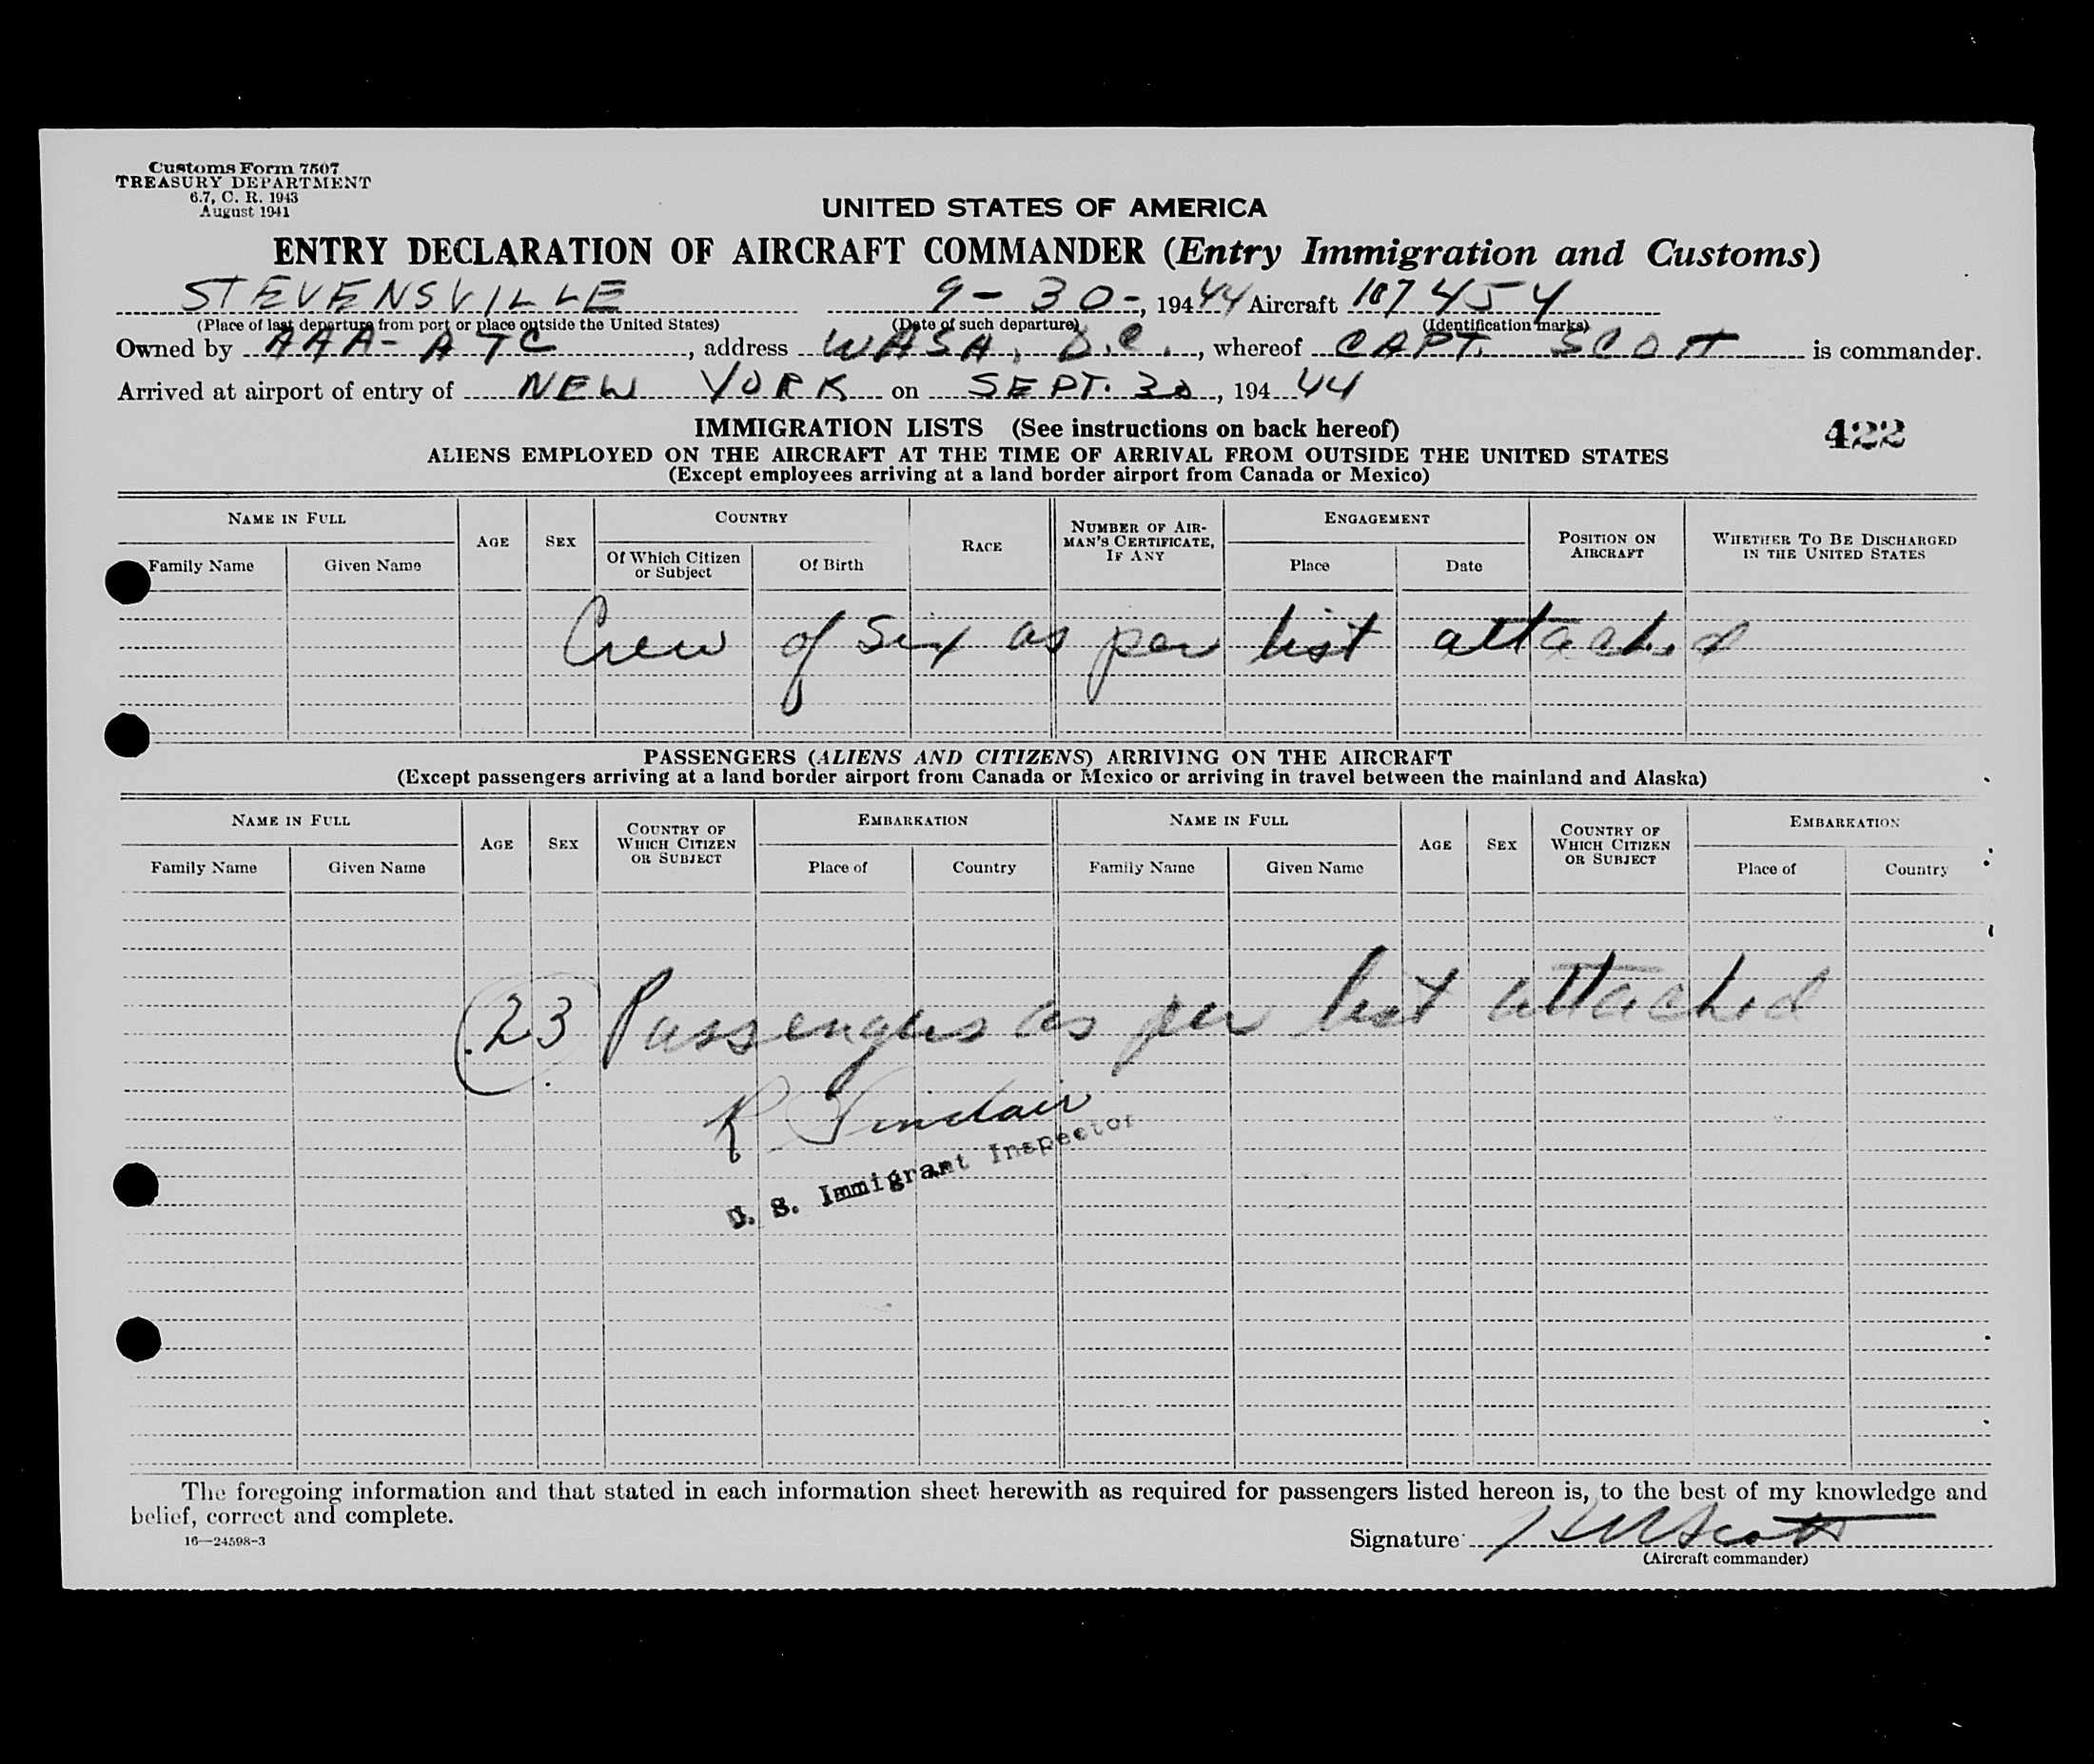 Customs Form 7507
TREASURY DEPARTMENT
6.7, C. R. 1943
August 1941
UNITED STATES OF AMERICA
ENTRY DECLARATION OF AIRCRAFT COMMANDER (Entry Immigration and Customs)
STEVENSVILLE 9-30-, 194 44 Aircraft 107454
(Place of last departure from port or place outside the United States) (Date of such departure) (Identification marks)
Owned by AAA-ATC, address WASA, D.C., whereof CAPT. SCOTT is commander.
Arrived at airport of entry of NEW YORK on SEPT. 30, 194 44
IMMIGRATION LISTS (See instructions on back hereof)
422
ALIENS EMPLOYED ON THE AIRCRAFT AT THE TIME OF ARRIVAL FROM OUTSIDE THE UNITED STATES
(Except employees arriving at a land border airport from Canada or Mexico)
NAME IN FULL AGE SEX COUNTRY RACE NUMBER OF AIRMAN'S CERTIFICATE, IF ANY ENGAGEMENT POSITION ON AIRCRAFT WHETHER TO BE DISCHARGED IN THE UNITED STATES
Family Name Given Name Of Which Citizen or Subject Of Birth Place Date
Crew of six as per list attached
PASSENGERS (ALIENS AND CITIZENS) ARRIVING ON THE AIRCRAFT
(Except passengers arriving at a land border airport from Canada or Mexico or arriving in travel between the mainland and Alaska)
NAME IN FULL AGE SEX COUNTRY OF WHICH CITIZEN OR SUBJECT EMBARKATION NAME IN FULL AGE SEX COUNTRY OF WHICH CITIZEN OR SUBJECT EMBARKATION
Family Name Given Name Place of Country Family Name Given Name Place of Country
23 Passengers as per list attached
R Sinclair
U. S. Immigrant Inspector
The foregoing information and that stated in each information sheet herewith as required for passengers listed hereon is, to the best of my knowledge and
belief, correct and complete.
16—24598-3
Signature Scott
(Aircraft commander)